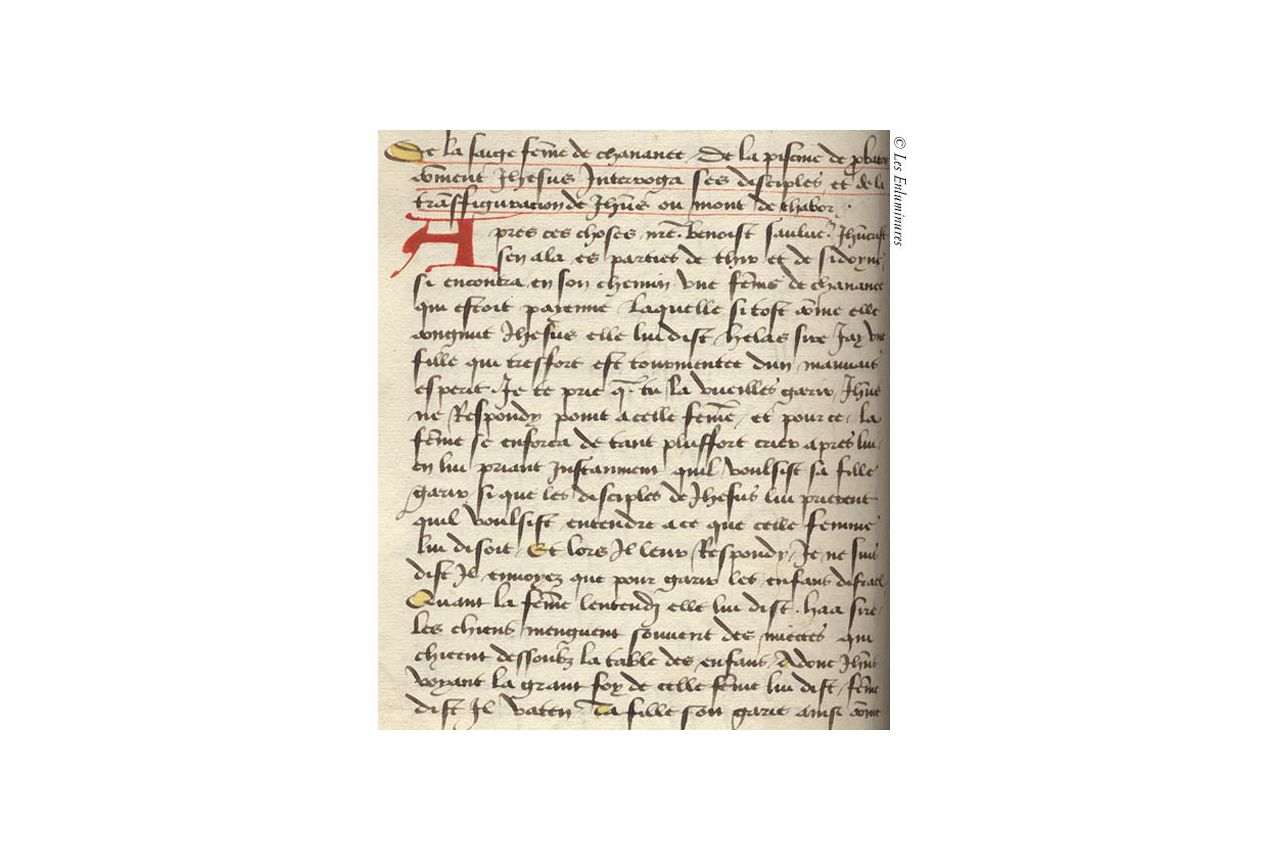 De la saige fēme de chananee. De la piscine de pbatiq
cōment Jhesus Interroga ses disciples et de la
trāsfiguracion de Jhūs ou mont de thabor.
Apres ces choses nr̄e benoist sauluer Jhūcrist
sen ala es parties de thir et de sidoyne
si encontra en son chemin vne fēme de chananee
qui estoit paienne Laquelle si tost cōme elle
congnut Jhesus elle lui dist helas sire Jay vne
fille qui tresfort est tourmentee dun mauuais
esperit. Je te prie q̄ tu la vueilles garir, Jhūs
ne Respondy point a celle femē, et pour ce la
fēme se enforca de tant plusfort crier apres lui,
en lui priant Instanment quil voulsist sa fille
garir si que les disciples de Jhesus lui prierent
quil voulsist entendre a ce que celle femme
lui disoit, Et lors Il leur Respondy, Je ne suis
dist Il enuoyez que pour garir les enfans disrael
Quant la fēme lentendy elle lui dist. haa sire
les chiens menguent souuent des miettes qui
chieent dessoubz la table des enfans, Adonc Jhūs
voyant la grant foy de celle fēme lui dist, fēme
dist Il vaten Ta fille soit garie ainsi cōme
© Les Enluminures